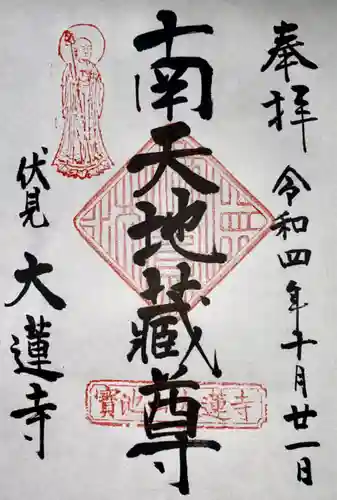 奉拝
令和四年十月廿一日
南天地蔵尊
伏見
大蓮寺